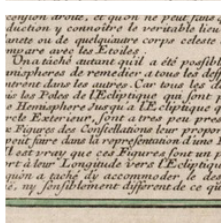 cension droite, et qu'on ne peut sans
duction y connoitre le veritable lieu
anete ou de quelqu'autre corps celeste
mpare avec les Etoiles.
On a taché autant qu'il a été possibl
emispheres de remedier a tous les déf
ntrent dans les autres. Car tous les
les Poles de l'Ecliptique qui sont
e Hemisphere Jusqu'a l'Ecliptique
rcle Exterieur, sont a tres peu pres
x Figures des Constellations leur propor
peut faire dans la representation d'une
Il est vray que ces Figures sont un p
ort à leur Longitude vers l'Ecliptiqu
qu'on a taché d'y accommoder le des
é, ny sensiblement different de ce q